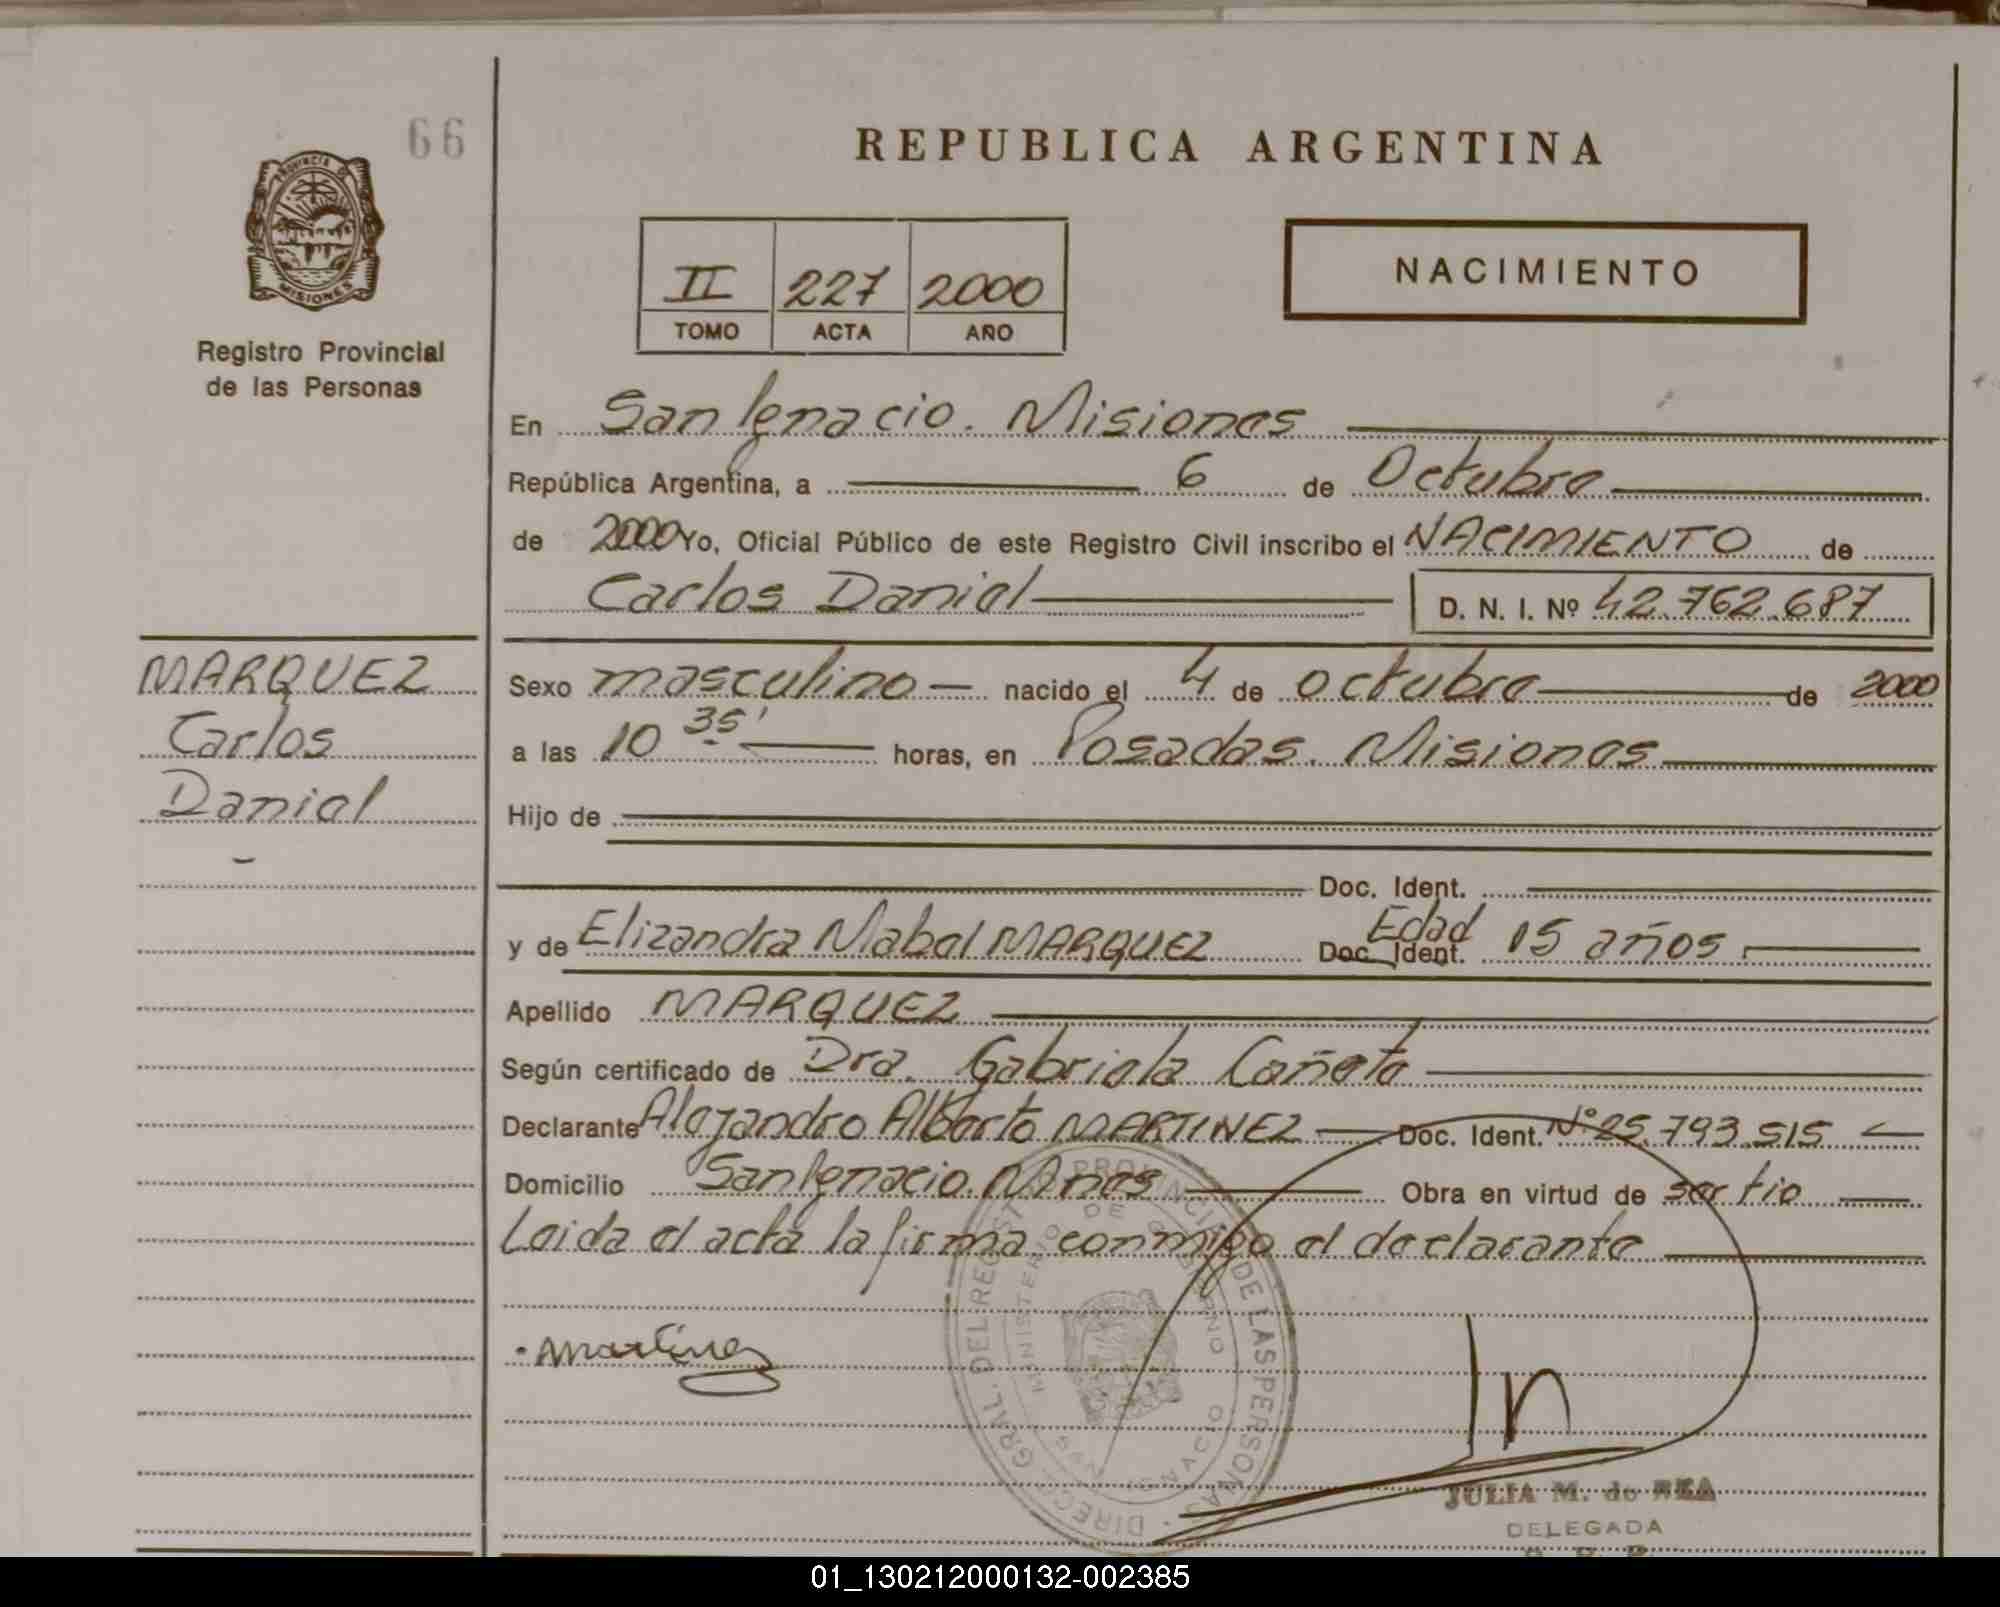 66
REPUBLICA ARGENTINA
PROVINCIA DE MISIONES
Registro Provincial
de las Personas
II 227 2000
TOMO ACTA AÑO
NACIMIENTO
En San Ignacio. Misiones
República Argentina, a 6 de Octubre
de 2000 Yo, Oficial Público de este Registro Civil inscribo el NACIMIENTO de
Carlos Daniel D. N. I. Nº 42.762.687
MARQUEZ
Carlos
Daniel
Sexo masculino nacido el 4 de octubre de 2000
a las 10 35' horas, en Posadas. Misiones
Hijo de
Doc. Ident.
y de Elizandra Mabel MARQUEZ Doc. Ident. Edad 15 años
Apellido MARQUEZ
Según certificado de Dra. Gabriela Cañete
Declarante Alejandro Alberto MARTINEZ Doc. Ident. Nº 25.793.515
Domicilio San Ignacio. Mnes Obra en virtud de ser tio
Leida el acta la firma conmigo el declarante
Martinez
DIRECC. GRAL. DEL REGISTRO PROVINCIAL DE LAS PERSONAS
MINISTERIO DE GOBIERNO
SAN IGNACIO
JULIA M. de
DELEGADA
01_130212000132-002385